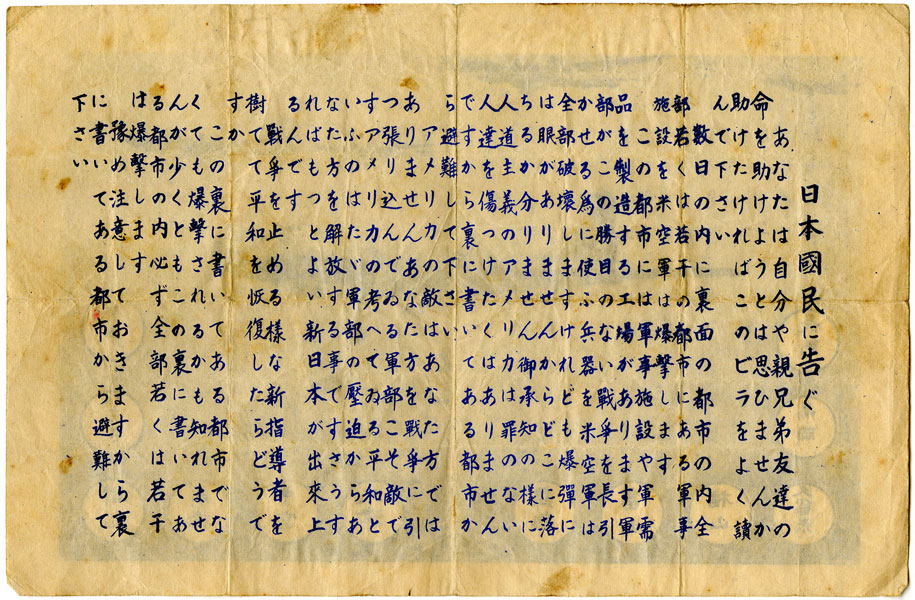 日本國民に告ぐ
あなたは自分や親兄弟友達の
命を助けようとは思ひませんか
助けたければこのビラをよく讀
んで下さい
数日の内に裏面の都市の内全
部若くは若干の都市にある軍事
施設を米空軍は爆撃します
この都市には軍事施設や軍需
品を製造する工場があります軍
部がこの勝目のない戰爭を長引
かせる為に使ふ兵器を米空軍は
全部破壞しますけれども爆彈に
は眼がありませんからどこに落
ちるか分りません御承知の様に
人道主義のアメリカは罪のない
人達を傷つけたくはありません
ですから裏に書いてある都市か
ら避難して下さい
アメリカの敵はあなた方では
ありませんあなた方を戰爭に引
つ張り込んでゐる軍部こそ敵で
すアメリカの考へてゐる平和と
いふのはたゞ軍部の壓迫からあ
なた方を解放する事ですさうす
ればもつとよい新日本が出來上
るんです
戰爭を止める様な新指導者を
樹てて平和を恢復したらどうで
すか
この裏に書いてある都市でな
くても爆撃されるかも知れませ
んが少くともこの裏に書いてあ
る都市の内必ず全部若くは若干
は爆撃します
豫め注意しておきますから裏
に書いてある都市から避難して
下さい